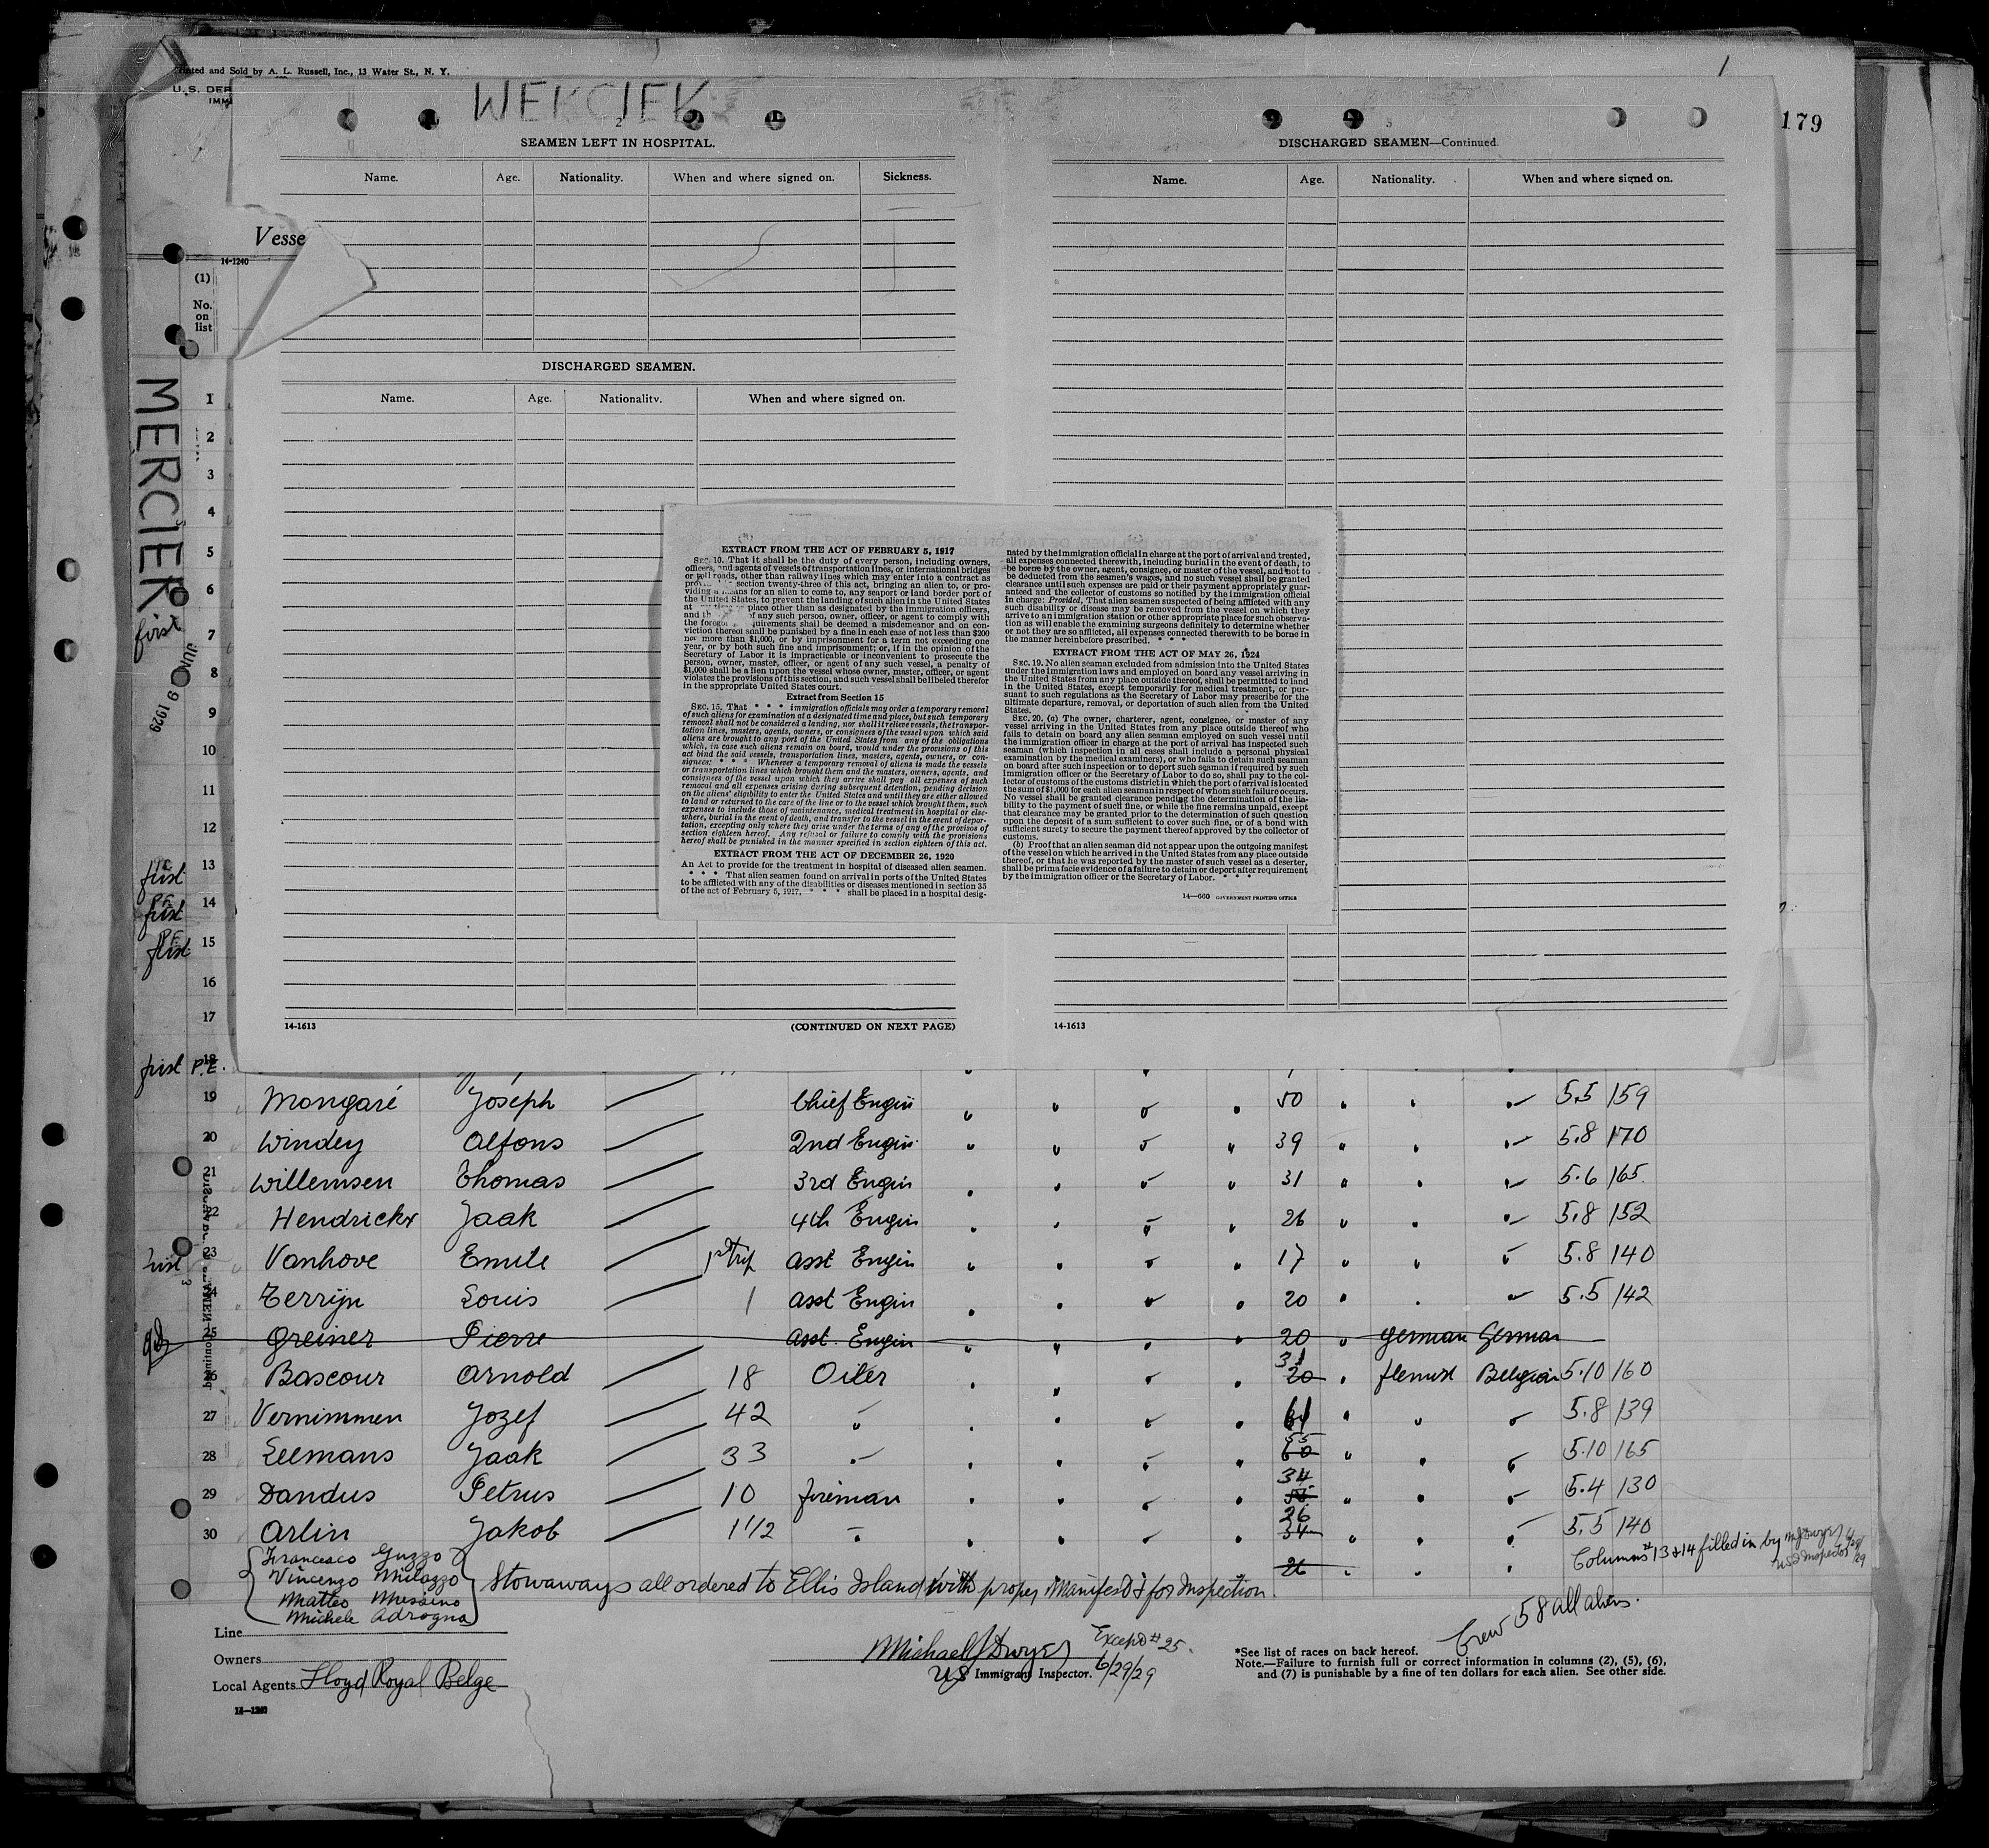 Printed and Sold by A. L. Russell, Inc., 13 Water St., N. Y.
U. S. DEP
IMMI
1
MERCIER
2
3
179
SEAMEN LEFT IN HOSPITAL.
Name. Age. Nationality. When and where signed on. Sickness.
DISCHARGED SEAMEN—Continued.
Name. Age. Nationality. When and where signed on.
Vesse
14-1240
(1)
No. on list
DISCHARGED SEAMEN.
Name. Age. Nationality. When and where signed on.
MERCIER
first
JUN 9 1929
1
2
3
4
5
6
7
8
9
10
11
12
first 13
first 14
first 15
16
17
EXTRACT FROM THE ACT OF FEBRUARY 5, 1917
SEC. 10. That it shall be the duty of every person, including owners,
officers, and agents of vessels of transportation lines, or international bridges
or toll roads, other than railway lines which may enter into a contract as
section twenty-three of this act, bringing an alien to, or pro-
viding a means for an alien to come to, any seaport or land border port of
the United States, to prevent the landing of such alien in the United States
at place other than as designated by the immigration officers,
and of any such person, owner, officer, or agent to comply with
the foregoing requirements shall be deemed a misdemeanor and on con-
viction thereof shall be punished by a fine in each case of not less than $200
nor more than $1,000, or by imprisonment for a term not exceeding one
year, or by both such fine and imprisonment; or, if in the opinion of the
Secretary of Labor it is impracticable or inconvenient to prosecute the
person, owner, master, officer, or agent of any such vessel, a penalty of
$1,000 shall be a lien upon the vessel whose owner, master, officer, or agent
violates the provisions of this section, and such vessel shall be libeled therefor
in the appropriate United States court.
Extract from Section 15
SEC. 15. That * * * immigration officials may order a temporary removal
of such aliens for examination at a designated time and place, but such temporary
removal shall not be considered a landing, nor shall it relieve vessels, the transpor-
tation lines, masters, agents, owners, or consignees of the vessel upon which said
aliens are brought to any port of the United States from any of the obligations
which, in case such aliens remain on board, would under the provisions of this
act bind the said vessels, transportation lines, masters, agents, owners, or con-
signees: * * * Whenever a temporary removal of aliens is made the vessels
or transportation lines which brought them and the masters, owners, agents, and
consignees of the vessel upon which they arrive shall pay all expenses of such
removal and all expenses arising during subsequent detention, pending decision
on the aliens' eligibility to enter the United States and until they are either allowed
to land or returned to the care of the line or to the vessel which brought them, such
expenses to include those of maintenance, medical treatment in hospital or else-
where, burial in the event of death, and transfer to the vessel in the event of depor-
tation, excepting only where they arise under the terms of any of the provisos of
section eighteen hereof. Any refusal or failure to comply with the provisions
hereof shall be punished in the manner specified in section eighteen of this act.
EXTRACT FROM THE ACT OF DECEMBER 26, 1920
An Act to provide for the treatment in hospital of diseased alien seamen.
* * * That alien seamen found on arrival in ports of the United States
to be afflicted with any of the disabilities or diseases mentioned in section 35
of the act of February 5, 1917. * * * shall be placed in a hospital desig-
nated by the immigration official in charge at the port of arrival and treated,
all expenses connected therewith, including burial in the event of death, to
be borne by the owner, agent, consignee, or master of the vessel, and not to
be deducted from the seamen's wages, and no such vessel shall be granted
clearance until such expenses are paid or their payment appropriately guar-
anteed and the collector of customs so notified by the immigration official
in charge: Provided, That alien seamen suspected of being afflicted with any
such disability or disease may be removed from the vessel on which they
arrive to an immigration station or other appropriate place for such observa-
tion as will enable the examining surgeons definitely to determine whether
or not they are so afflicted, all expenses connected therewith to be borne in
the manner hereinbefore prescribed. * * *
EXTRACT FROM THE ACT OF MAY 26, 1924
SEC. 19. No alien seaman excluded from admission into the United States
under the immigration laws and employed on board any vessel arriving in
the United States from any place outside thereof, shall be permitted to land
in the United States, except temporarily for medical treatment, or pur-
suant to such regulations as the Secretary of Labor may prescribe for the
ultimate departure, removal, or deportation of such alien from the United
States.
SEC. 20. (a) The owner, charterer, agent, consignee, or master of any
vessel arriving in the United States from any place outside thereof who
fails to detain on board any alien seaman employed on such vessel until
the immigration officer in charge at the port of arrival has inspected such
seaman (which inspection in all cases shall include a personal physical
examination by the medical examiners), or who fails to detain such seaman
on board after such inspection or to deport such seaman if required by such
immigration officer or the Secretary of Labor to do so, shall pay to the col-
lector of customs of the customs district in which the port of arrival is located
the sum of $1,000 for each alien seaman in respect of whom such failure occurs.
No vessel shall be granted clearance pending the determination of the lia-
bility to the payment of such fine, or while the fine remains unpaid, except
that clearance may be granted prior to the determination of such question
upon the deposit of a sum sufficient to cover such fine, or of a bond with
sufficient surety to secure the payment thereof approved by the collector of
customs.
(b) Proof that an alien seaman did not appear upon the outgoing manifest
of the vessel on which he arrived in the United States from any place outside
thereof, or that he was reported by the master of such vessel as a deserter,
shall be prima facie evidence of a failure to detain or deport after requirement
by the immigration officer or the Secretary of Labor. * * *
14—660 GOVERNMENT PRINTING OFFICE
14-1613 (CONTINUED ON NEXT PAGE)
14-1613
first P.E. 18
19 Mongaré Joseph Chief Engin 50 5.5 159
20 Windey Alfons 2nd Engin 39 5.8 170
21 Willemsen Thomas 3rd Engin 31 5.6 165
22 Hendrickx Jaak 4th Engin 26 5.8 152
first 23 Vanhove Emile 1st trip asst Engin 17 5.8 140
24 Terrijn Louis 1 asst Engin 20 5.5 142
25 Greiner Pierre asst. Engin 20 german German
26 Bascour Arnold 18 Oiler 31 20 flemish Belgian 5.10 160
27 Vernimmen Jozef 42 61 5.8 139
28 Leemans Jaak 33 55 60 5.10 165
29 Dandus Petrus 10 fireman 34 55 5.4 130
30 Arlin Jakob 1 1/2 26 34 5.5 140
26
Columns # 13 & 14 filled in by M J Dwyer US Inspector 6/29/29
Francesco Guzzo
Vincenzo Milazzo
Matteo Messino
Michele Adrogna
Stowaways all ordered to Ellis Island with proper Manifest & for Inspection.
Crew 58 all aliens.
Line
Owners
Local Agents Lloyd Royal Belge
14—1240
Michael J Dwyer Except # 25.
US Immigrant Inspector. 6/29/29
*See list of races on back hereof.
Note.—Failure to furnish full or correct information in columns (2), (5), (6),
and (7) is punishable by a fine of ten dollars for each alien. See other side.